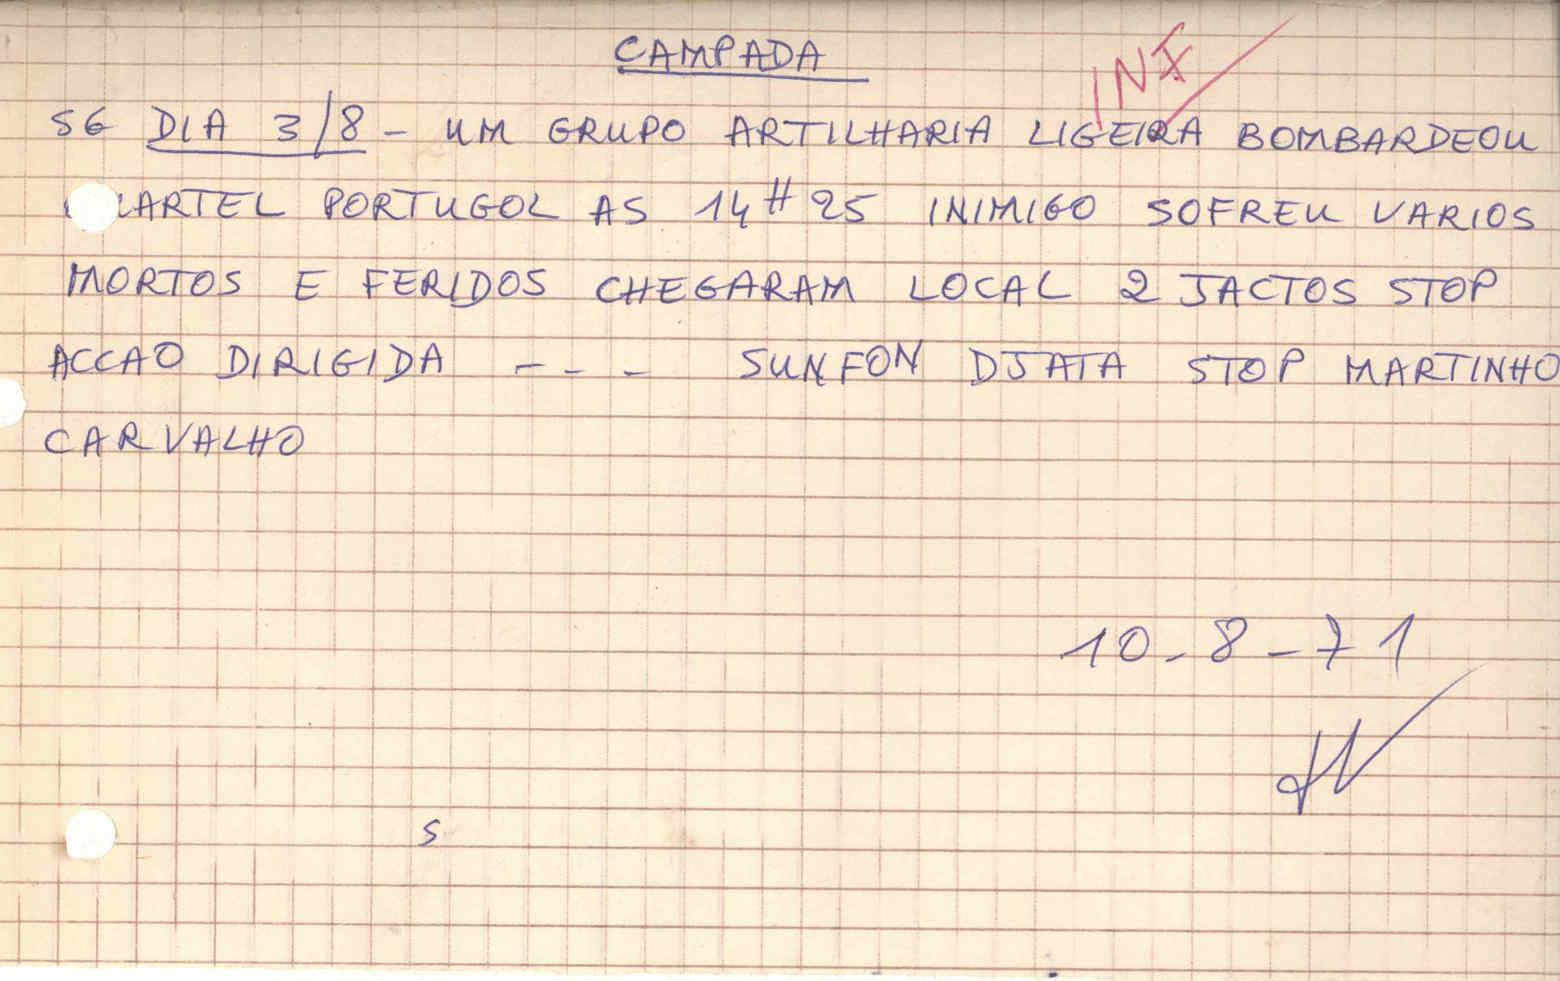 CAMPADA
INF
SG DIA 3/8 - UM GRUPO ARTILHARIA LIGEIRA BOMBARDEOU
QUARTEL PORTUGOL AS 14H25 INIMIGO SOFREU VARIOS
MORTOS E FERIDOS CHEGARAM LOCAL 2 JACTOS STOP
ACCAO DIRIGIDA --- SUNFON DJATA STOP MARTINHO
CARVALHO
10-8-71
S